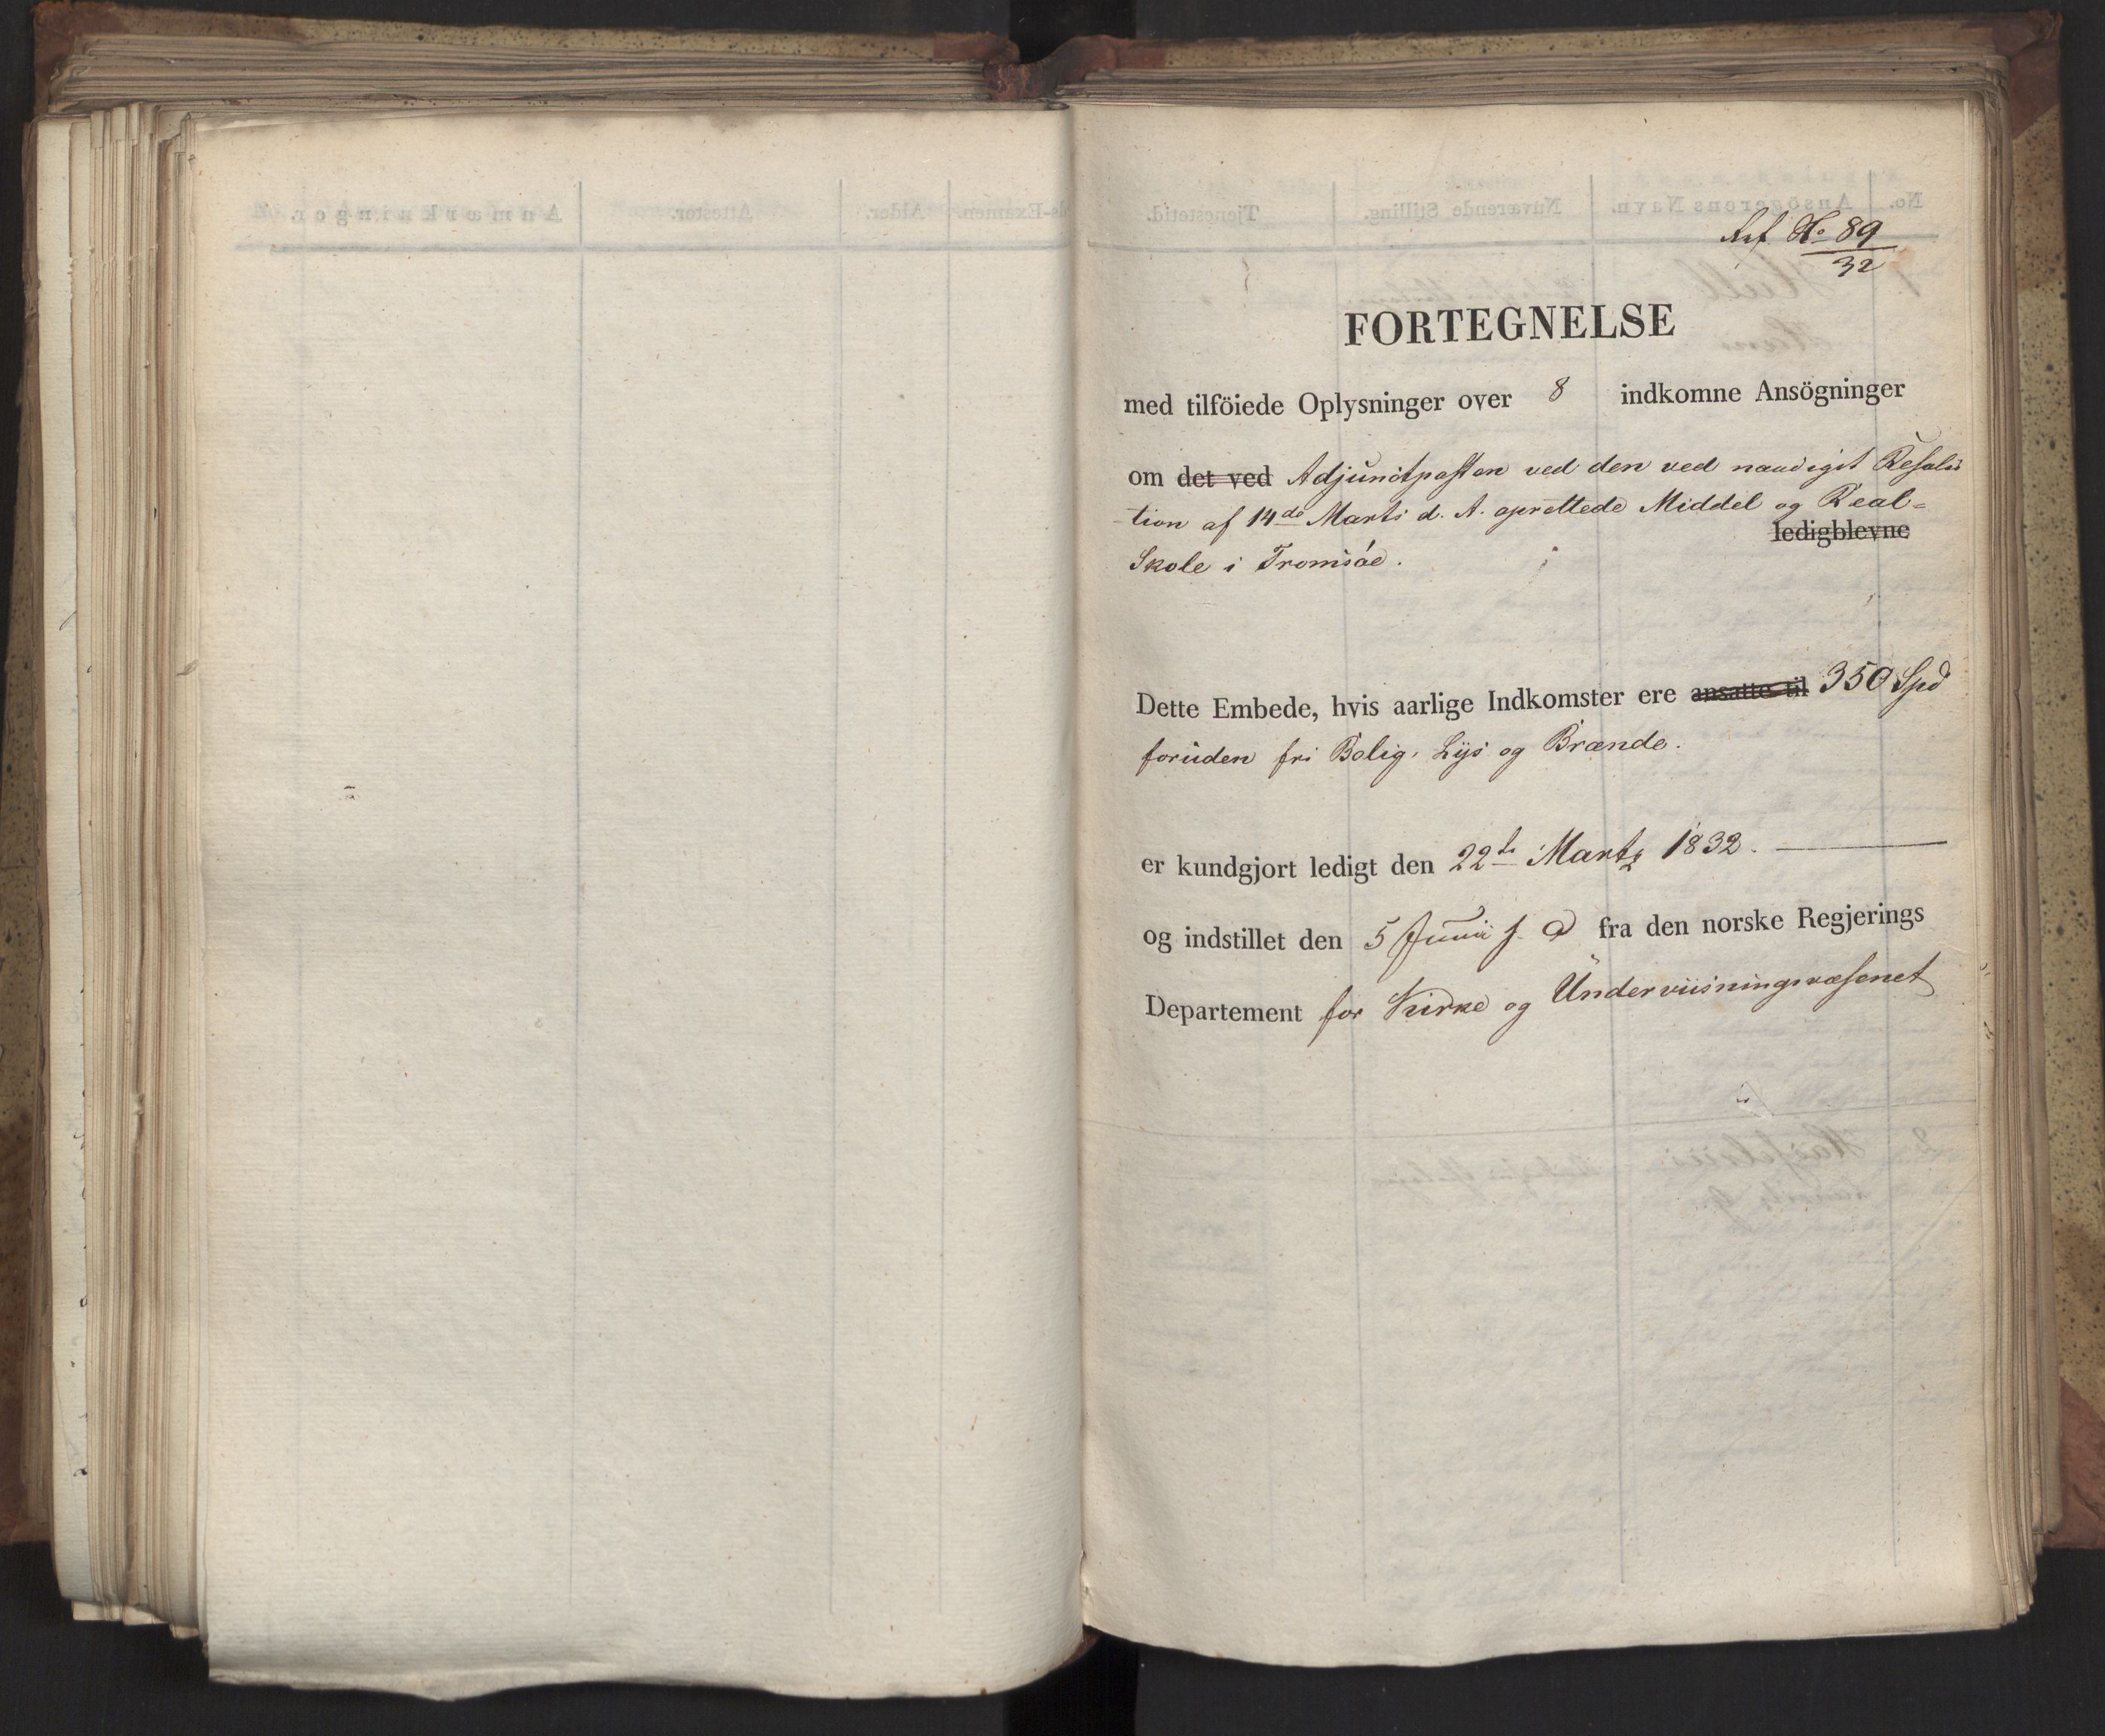 Ref. No 89
32
FORTEGNELSE
med tilföiede Oplysninger over 8 indkomne Ansögninger
om det ved Adjunctposten ved den ved naadigst Resolu
tion af 14de Marts d. A. oprettede Middel og Real=
ledigblevne
Skole i Tromsöe.
Dette Embede, hvis aarlige Indkomster ere ansatte til 350 Spd
foruden fri Bolig, Lys og Brænde.
er kundgjort ledigt den 22de Marts 1832.
og indstillet den 5 Junii s. A fra den norske Regjerings
Departement for Kirke og Underviisningsvæsenet
No. Ansögerens Navn. Nuværende Stilling. Tjenestetid.
Examen. Alder. Attester. Anmærkninger.